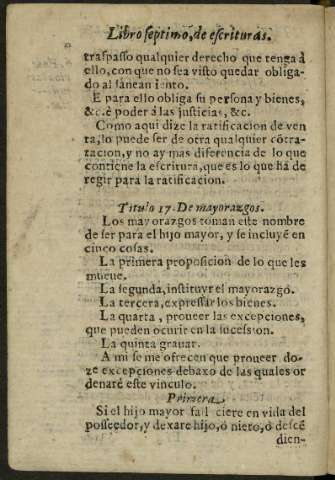 Libro septimo, de escrituras.
traspasso qualquier derecho que tenga à
ello, con que no sea visto quedar obliga-
do al saneamiento.
E para ello obliga su persona y bienes,
&c. è poder à las justicias, &c.
Como aqui dize la ratificacion de ven
ta, lo puede ser de otra qualquier cõtra-
tacion, y no ay mas diferencia de lo que
contiene la escritura, que es lo que ha de
regir para la ratificacion.
Titulo 17. De mayorazgos.
Los mayorazgos toman este nombre
de ser para el hijo mayor, y se incluyẽ en
cinco cosas.
La primera proposicion de lo que les
mueue.
La segunda, instituyr el mayorazgo.
La tercera, expressar los bienes.
La quarta, proueer las excepciones,
que pueden ocurir en la sucession.
La quinta grauar.
A mi se me ofrecen que proueer do-
ze excepciones debaxo de las quales or
denarè este vinculo.
Primera.
Si el hijo mayor falleciere en vida del
posseedor, y dexare hijo, ò nieto, ò descẽ
dien-